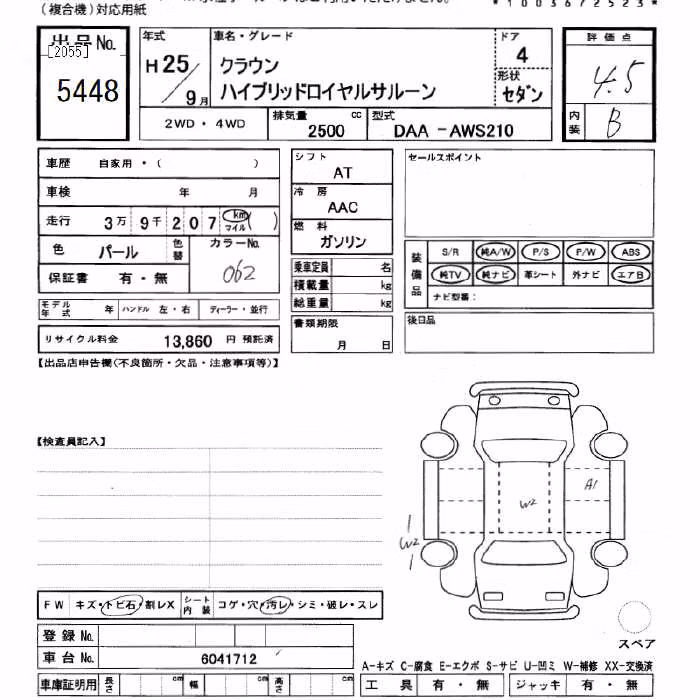 (複合機)対応用紙
*1003672523*
出品No.
[2055]
5448
年式
H25/9月
車名・グレード
クラウン
ハイブリッドロイヤルサルーン
ドア
4
形状
セダン
評価点
4.5
内装
B
2WD・4WD
排気量
2500
cc
型式
DAA -AWS210
車歴 自家用・( )
車検 年 月
走行 3万 9千 2 0 7 km マイル ( )
色 パール 色替
カラーNo.
062
保証書 有・無
モデル年式 年 ハンドル 左・右 ディーラー・並行
リサイクル料金 13,860 円 預託済
シフト
AT
冷房
AAC
燃料
ガソリン
乗車定員 名
積載量 kg
総重量 kg
書類期限
月 日
セールスポイント
装備品
S/R 純A/W P/S P/W ABS
純TV 純ナビ 革シート 外ナビ エアB
ナビ型番:
後日品
【出品店申告欄(不良箇所・欠品・注意事項等)】
【検査員記入】
W2
A1
W2
FW キズ・トビ石・割レX シート内装 コゲ・穴・汚レ・シミ・破レ・スレ
登録No.
車台No. 6041712
車庫証明用 長さ cm 幅 cm 高さ cm
スペア
A-キズ C-腐食 E-エクボ S-サビ U-凹ミ W-補修 XX-交換済
工具 有・無 ジャッキ 有・無